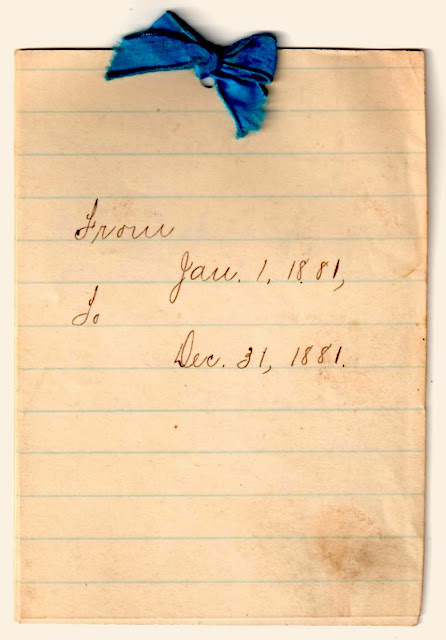 From
Jan. 1, 1881,
To
Dec. 31, 1881.